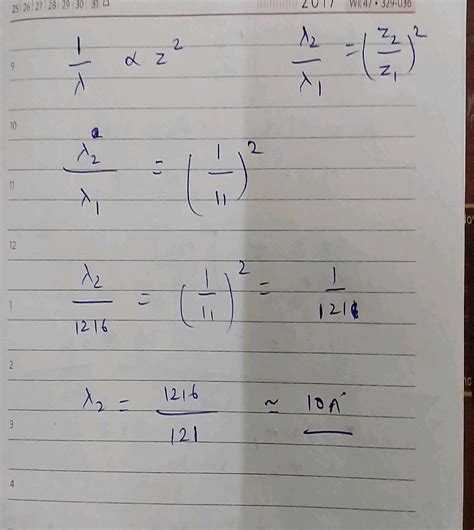 25 26 27 28 29 30 31 2017 Wk 47 • 329-036
1/λ ∝ z² λ₂/λ₁ = (z₂/z₁)²
9
10
λ₂/λ₁ = (1/11)²
11
12
λ₂/1216 = (1/11)² = 1/121
1
2
λ₂ = 1216/121 ≈ 10A°
3
4